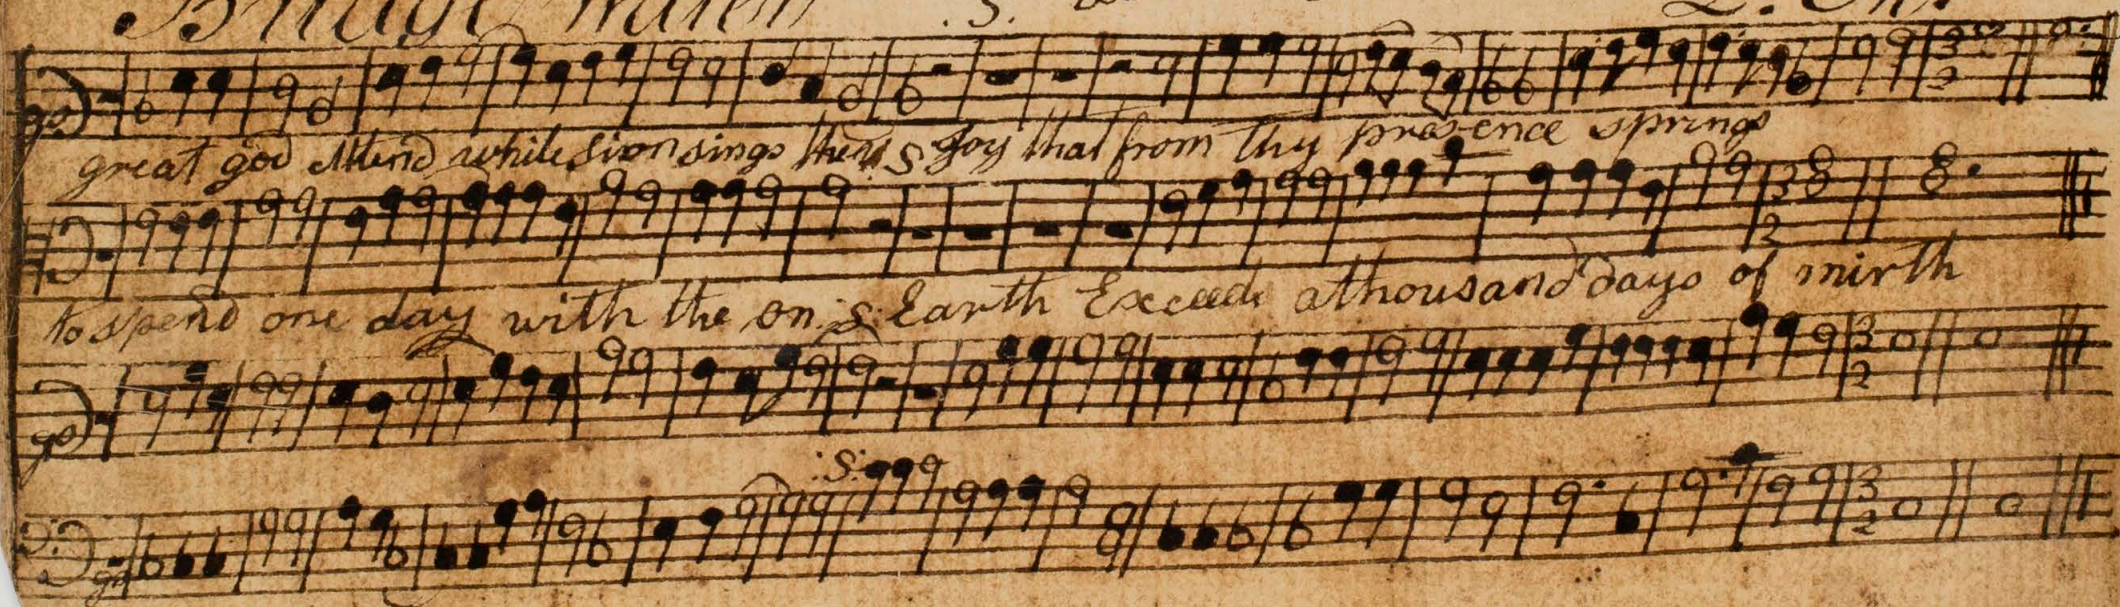 Bridge water :S:
great god attend while sion sings the joy that from thy presence springs
to spend one day with the on :S: Earth Exceeds a thousand days of mirth
:S: